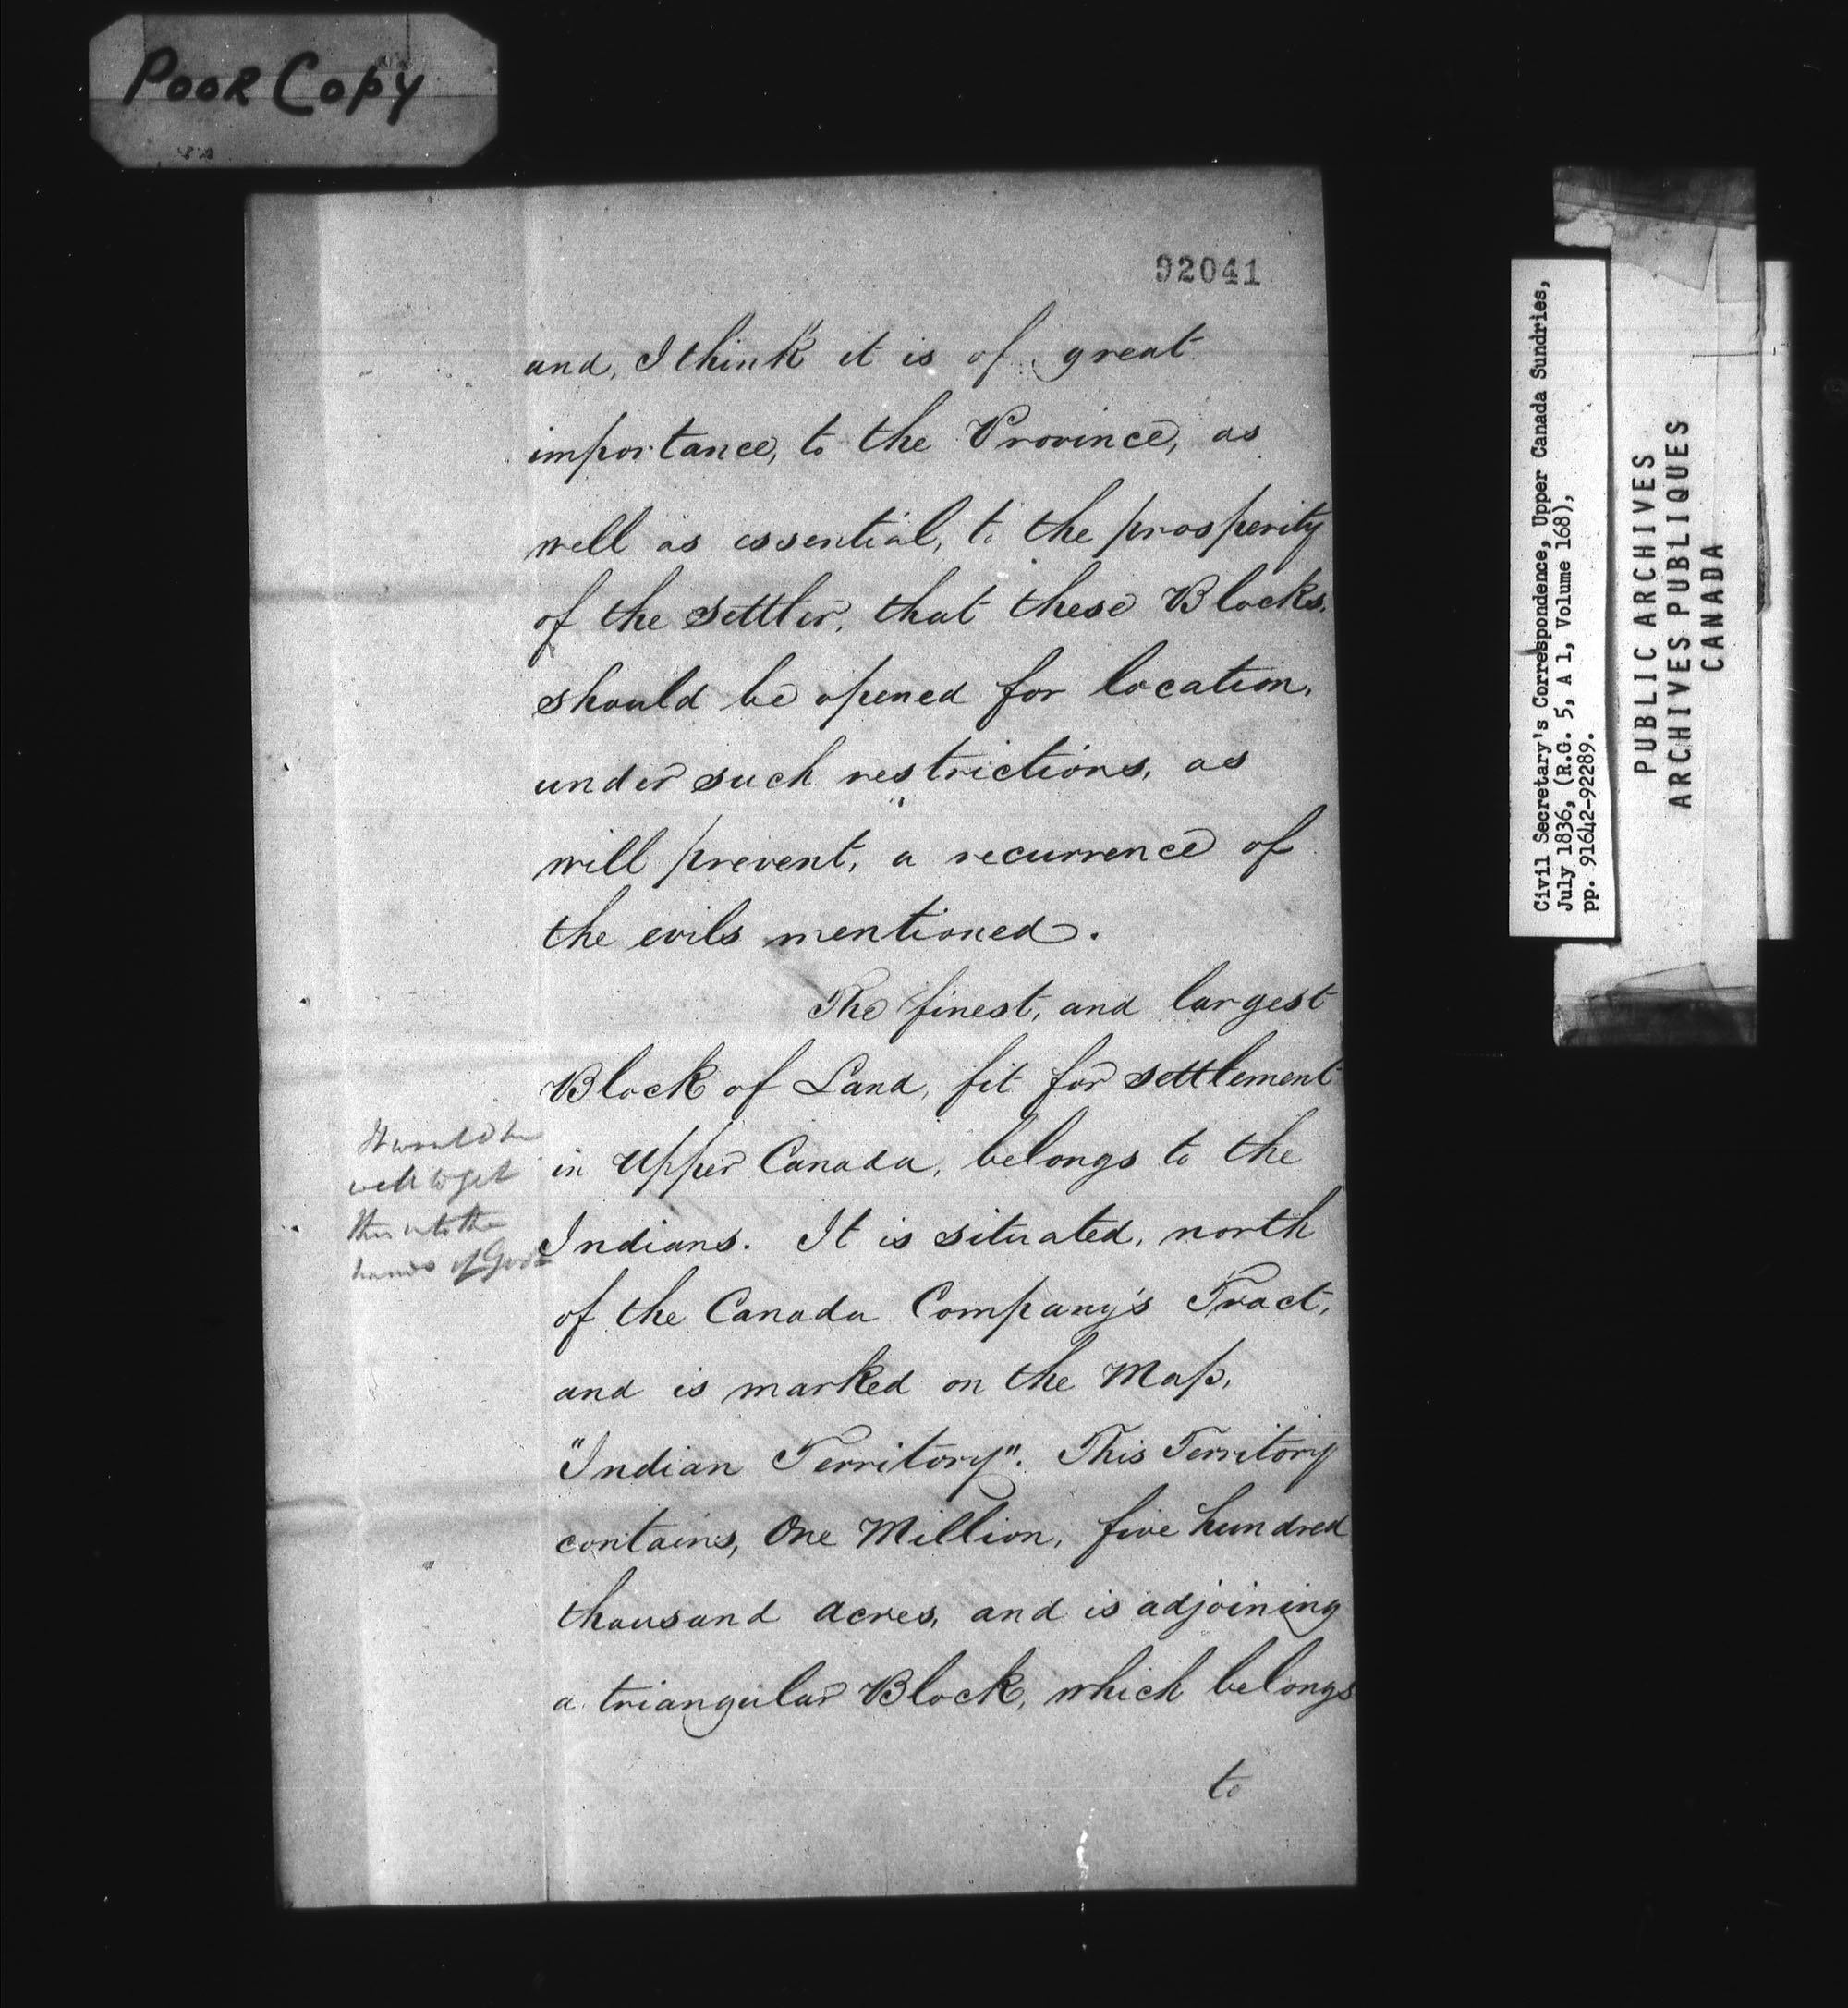 POOR COPY
92041
and, I think it is of great
importance, to the Province, as
well as essential, to the prosperity
of the Settler, that these Blocks,
should be opened for location,
under such restrictions, as
will prevent, a recurrence of
the evils mentioned.
The finest, and largest
Block of Land, fit for settlement
in Upper Canada, belongs to the
Indians. It is situated, north
of the Canada Company's Tract,
and is marked on the Map,
"Indian Territory". This Territory
contains, One Million, five hundred
thousand acres, and is adjoining
a triangular Block, which belongs
to
It would be
well to get
this into the
hands of Govt
Civil Secretary's Correspondence, Upper Canada Sundries,
July 1836, (R.G. 5, A 1, Volume 168),
pp. 91642-92289.
PUBLIC ARCHIVES
ARCHIVES PUBLIQUES
CANADA